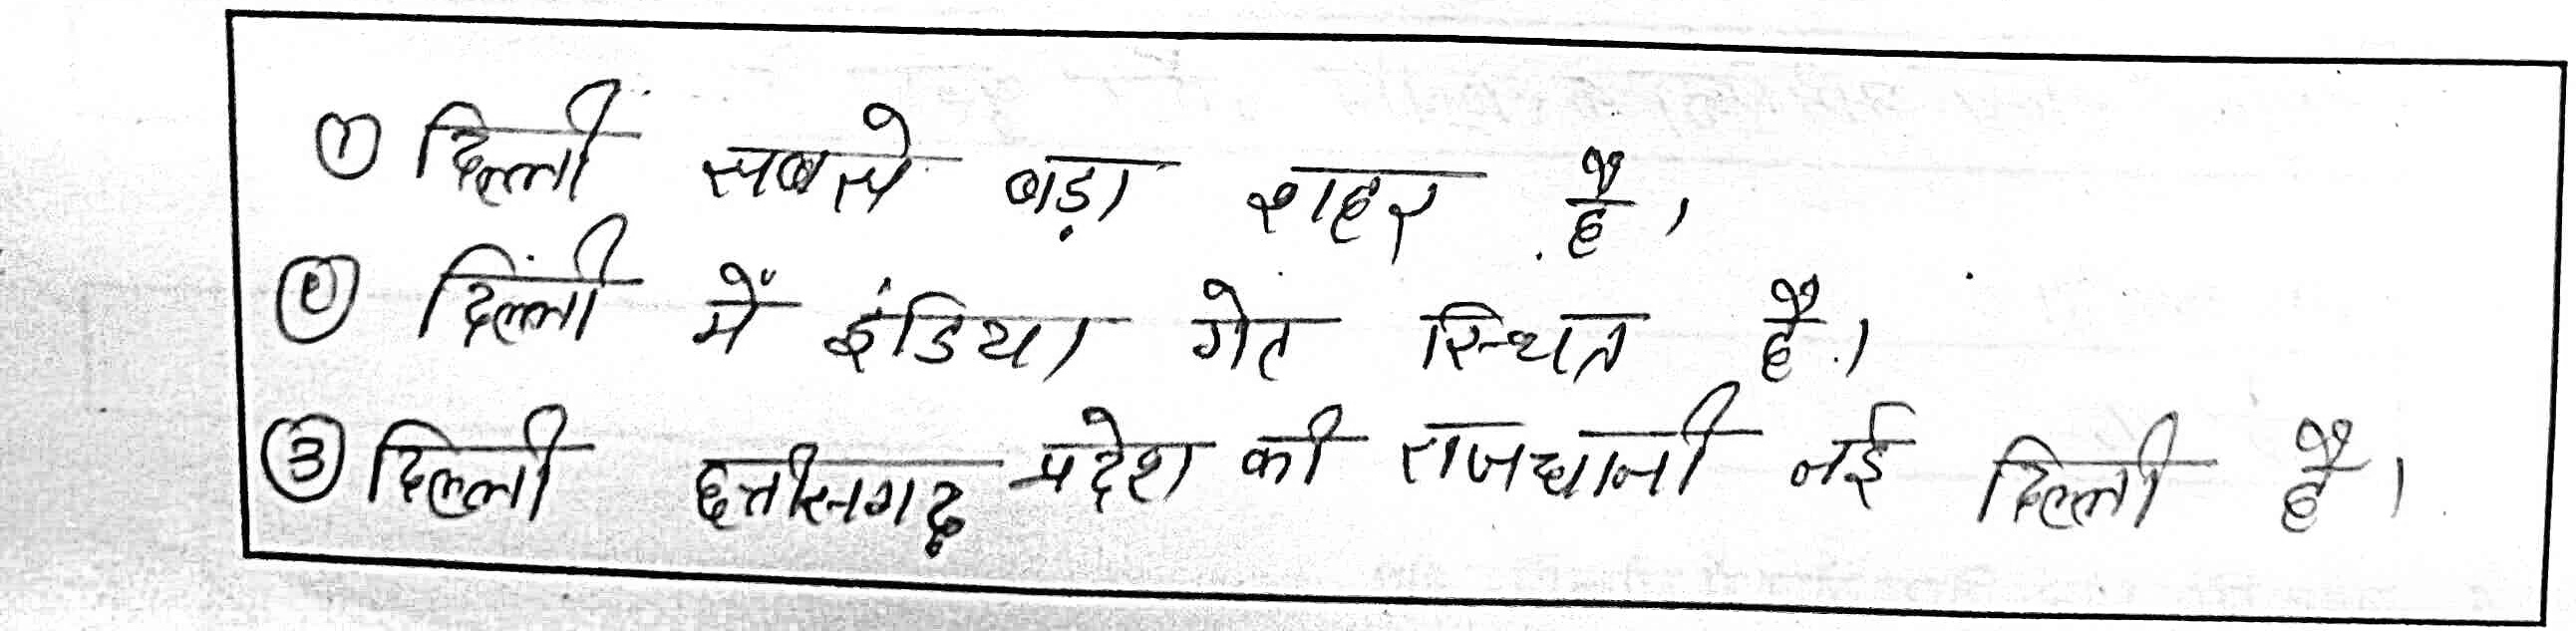 ① दिल्ली सबसे बड़ा शहर है।
② दिल्ली में इंडिया गेट स्थित है।
③ दिल्ली छत्तीसगढ़ प्रदेश की राजधानी नई दिल्ली है।